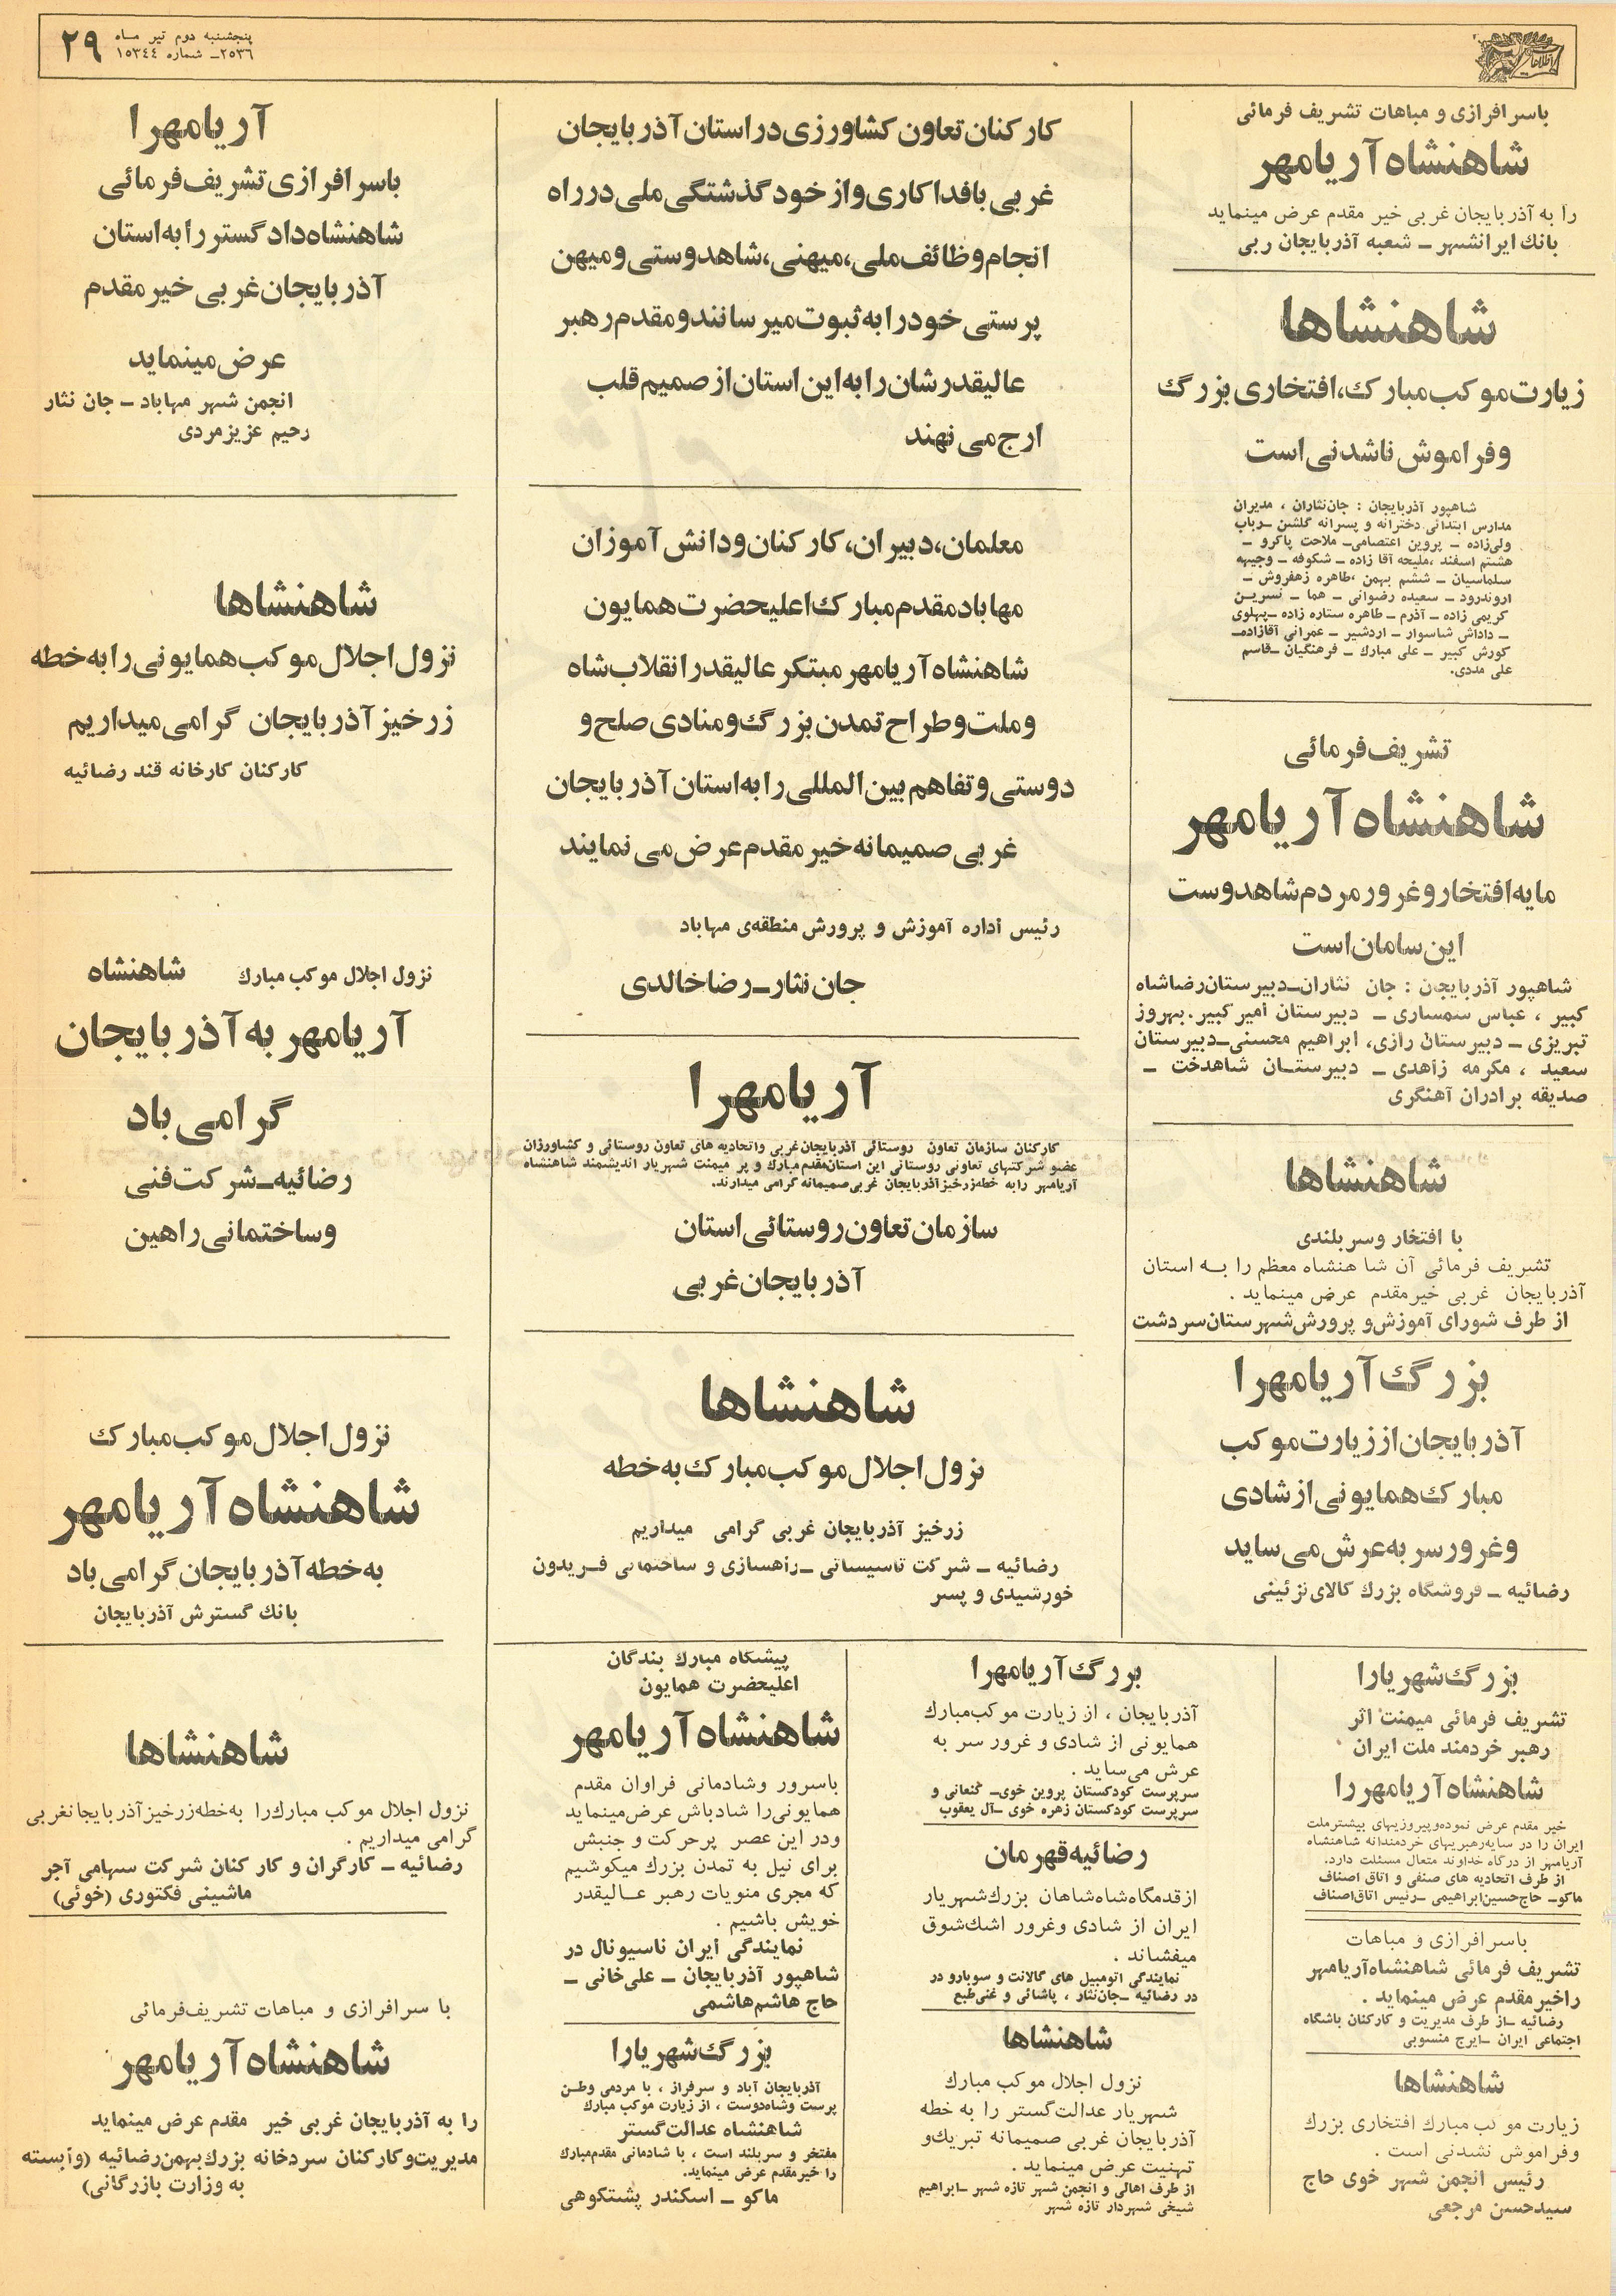 پنجشنبه دوم تیر ماه
۲۵۳۶ـ شماره ۱۵۳٤٤
۲۹
اطلاعات
باسرافرازی و مباهات تشریف فرمائی
شاهنشاه آریامهر
را به آذربایجان غربی خیر مقدم عرض مینماید
بانك ایرانشهر ـ شعبه آذربایجان ربی
شاهنشاها
زیارت موکب مبارک، افتخاری بزرگ
وفراموش ناشدنی است
شاهپور آذربایجان : جان‌نثاران ، مدیران
مدارس ابتدائی دخترانه و پسرانه گلشن ـ رباب
ولی‌زاده ـ پروین اعتصامی ـ ملاحت پاکرو ـ
هشتم اسفند ،ملیحه آقا زاده ـ شکوفه ـ وجیهه
سلماسیان ـ ششم بهمن ،طاهره زهفروش ـ
اروندرود ـ سعیده رضوانی ـ هما ـ نسرین
کریمی زاده ـ آذرم ـ طاهره ستاره زاده ـ پهلوی
ـ داداش شاسوار ـ اردشیر ـ عمرانی آقازاده‌ـ
کورش کبیر ـ علی مبارك ـ فرهنگیان ـ قاسم
علی مددی.
تشریف فرمائی
شاهنشاه آریامهر
مایه افتخار و غرور مردم شاهدوست
این سامان است
شاهپور آذربایجان : جان نثاران‌ـدبیرستان رضاشاه
کبیر ، عباس سمساری ـ دبیرستان امیر کبیر. بهروز
تبریزی ـ دبیرستان رازی، ابراهیم محسنی‌ـدبیرستان
سعید ، مکرمه زاهدی ـ دبیرستان شاهدخت ـ
صدیقه برادران آهنگری
شاهنشاها
با افتخار وسربلندی
تشریف فرمائی آن شا هنشاه معظم را به استان
آذربایجان غربی خیرمقدم عرض مینماید .
از طرف شورای آموزش و پرورش شهرستان سردشت
بزرگ آریامهرا
آذربایجان از زیارت موکب
مبارک همایونی از شادی
و غرور سر به عرش می ساید
رضائیه ـ فروشگاه بزرك کالای تزئینی
کارکنان تعاون کشاورزی در استان آذربایجان
غربی با فداکاری و از خود گذشتگی ملی در راه
انجام وظائف ملی، میهنی، شاهدوستی و میهن
پرستی خود را به ثبوت میرسانند و مقدم رهبر
عالیقدرشان را به این استان از صمیم قلب
ارج می نهند
معلمان، دبیران، کارکنان و دانش آموزان
مهاباد مقدم مبارک اعلیحضرت همایون
شاهنشاه آریامهر مبتکر عالیقدر انقلاب شاه
و ملت و طراح تمدن بزرگ و منادی صلح و
دوستی و تفاهم بین المللی را به استان آذربایجان
غربی صمیمانه خیر مقدم عرض می نمایند
رئیس اداره آموزش و پرورش منطقه‌ی مهاباد
جان نثار ـ رضا خالدی
آریامهرا
کارکنان سازمان تعاون روستائی آذربایجان‌غربی واتحادیه های تعاون روستائی و کشاورزان
عضو شرکتهای تعاونی روستائی این استان‌مقدم مبارك و پر میمنت شهریار اندیشمند شاهنشاه
آریامهر رابه خطه‌زرخیز آذربایجان غربی‌صمیمانه گرامی میدارند.
سازمان تعاون روستائی استان
آذربایجان غربی
شاهنشاها
نزول اجلال موکب مبارک به خطه
زرخیز آذربایجان غربی گرامی میداریم
رضائیه ـ شرکت تاسیساتی ـ راهسازی و ساختمانی فریدون
خورشیدی و پسر
آریامهرا
باسرافرازی تشریف فرمائی
شاهنشاه دادگستر را به استان
آذربایجان غربی خیر مقدم
عرض مینماید
انجمن شهر مهاباد ـ جان نثار
رحیم عزیزمردی
شاهنشاها
نزول اجلال موکب همایونی را به خطه
زرخیز آذربایجان گرامی میداریم
کارکنان کارخانه قند رضائیه
نزول اجلال موکب مبارك شاهنشاه
آریامهر به آذربایجان
گرامی باد
رضائیه ـ شرکت فنی
و ساختمانی راهین
نزول اجلال موکب مبارک
شاهنشاه آریامهر
به خطه آذربایجان گرامی باد
بانك گسترش آذربایجان
شاهنشاها
نزول اجلال موکب مبارك‌را به‌خطه‌زرخیز آذربایجانغربی
گرامی میداریم .
رضائیه ـ کارگران و کارکنان شرکت سهامی آجر
ماشینی فکتوری (خوئی)
با سرافرازی و مباهات تشریف فرمائی
شاهنشاه آریامهر
را به آذربایجان غربی خیر مقدم عرض مینماید
مدیریت و کارکنان سردخانه بزرك بهمن رضائیه (وابسته
به وزارت بازرگانی)
بزرگ شهریارا
تشریف فرمائی میمنت اثر
رهبر خردمند ملت ایران
شاهنشاه آریامهر را
خیر مقدم عرض نموده‌وپیروزیهای بیشترملت
ایران را در سایه‌رهبریهای خردمندانه شاهنشاه
آریامهر از درگاه خداوند متعال مسئلت دارد.
از طرف اتحادیه های صنفی و اتاق اصناف
ماکو‌ـ حاج‌حسین‌ابراهیمی ـ رئیس اتاق‌اصناف
باسرافرازی و مباهات
تشریف فرمائی شاهنشاه آریامهر
راخیر مقدم عرض مینماید .
رضائیه ـ از طرف مدیریت و کارکنان باشگاه
اجتماعی ایران ـ ایرج منسوبی
شاهنشاها
زیارت موکب مبارك افتخاری بزرك
وفراموش نشدنی است .
رئیس انجمن شهر خوی حاج
سیدحسن مرجعی
بزرگ آریامهرا
آذربایجان ، از زیارت موکب‌مبارك
همایونی از شادی و غرور سر به
عرش می‌ساید .
سرپرست کودکستان پروین خوی‌ـ کنعانی و
سرپرست کودکستان زهره خوی ـ آل یعقوب
رضائیه قهرمان
ازقدمگاه شاه‌شاهان بزرك‌شهریار
ایران از شادی وغرور اشك‌شوق
میفشاند .
نمایندگی اتومبیل های گالانت و سوبارو در
در رضائیه ـ جان‌نثار ، پاشائی و غنی‌طبع
شاهنشاها
نزول اجلال موکب مبارك
شهریار عدالت‌گستر را به خطه
آذربایجان غربی صمیمانه تبریك‌و
تهنیت عرض مینماید .
از طرف اهالی و انجمن شهر تازه شهر ـ ابراهیم
شیخی شهردار تازه شهر
پیشگاه مبارك بندگان
اعلیحضرت همایون
شاهنشاه آریامهر
باسرور وشادمانی فراوان مقدم
همایونی‌را شادباش عرض‌مینماید
ودر این عصر پرحرکت و جنبش
برای نیل به تمدن بزرك میکوشیم
که مجری منویات رهبر عالیقدر
خویش باشیم .
نمایندگی ایران ناسیونال در
شاهپور آذربایجان ـ علی‌خانی ـ
حاج هاشم‌هاشمی
بزرگ شهریارا
آذربایجان آباد و سرفراز ، با مردمی وطن
پرست وشاه‌دوست ، از زیارت موکب مبارك
شاهنشاه عدالت‌گستر
مفتخر و سربلند است ، با شادمانی مقدم‌مبارك
را خیرمقدم عرض مینماید.
ماکو ـ اسکندر پشتکوهی